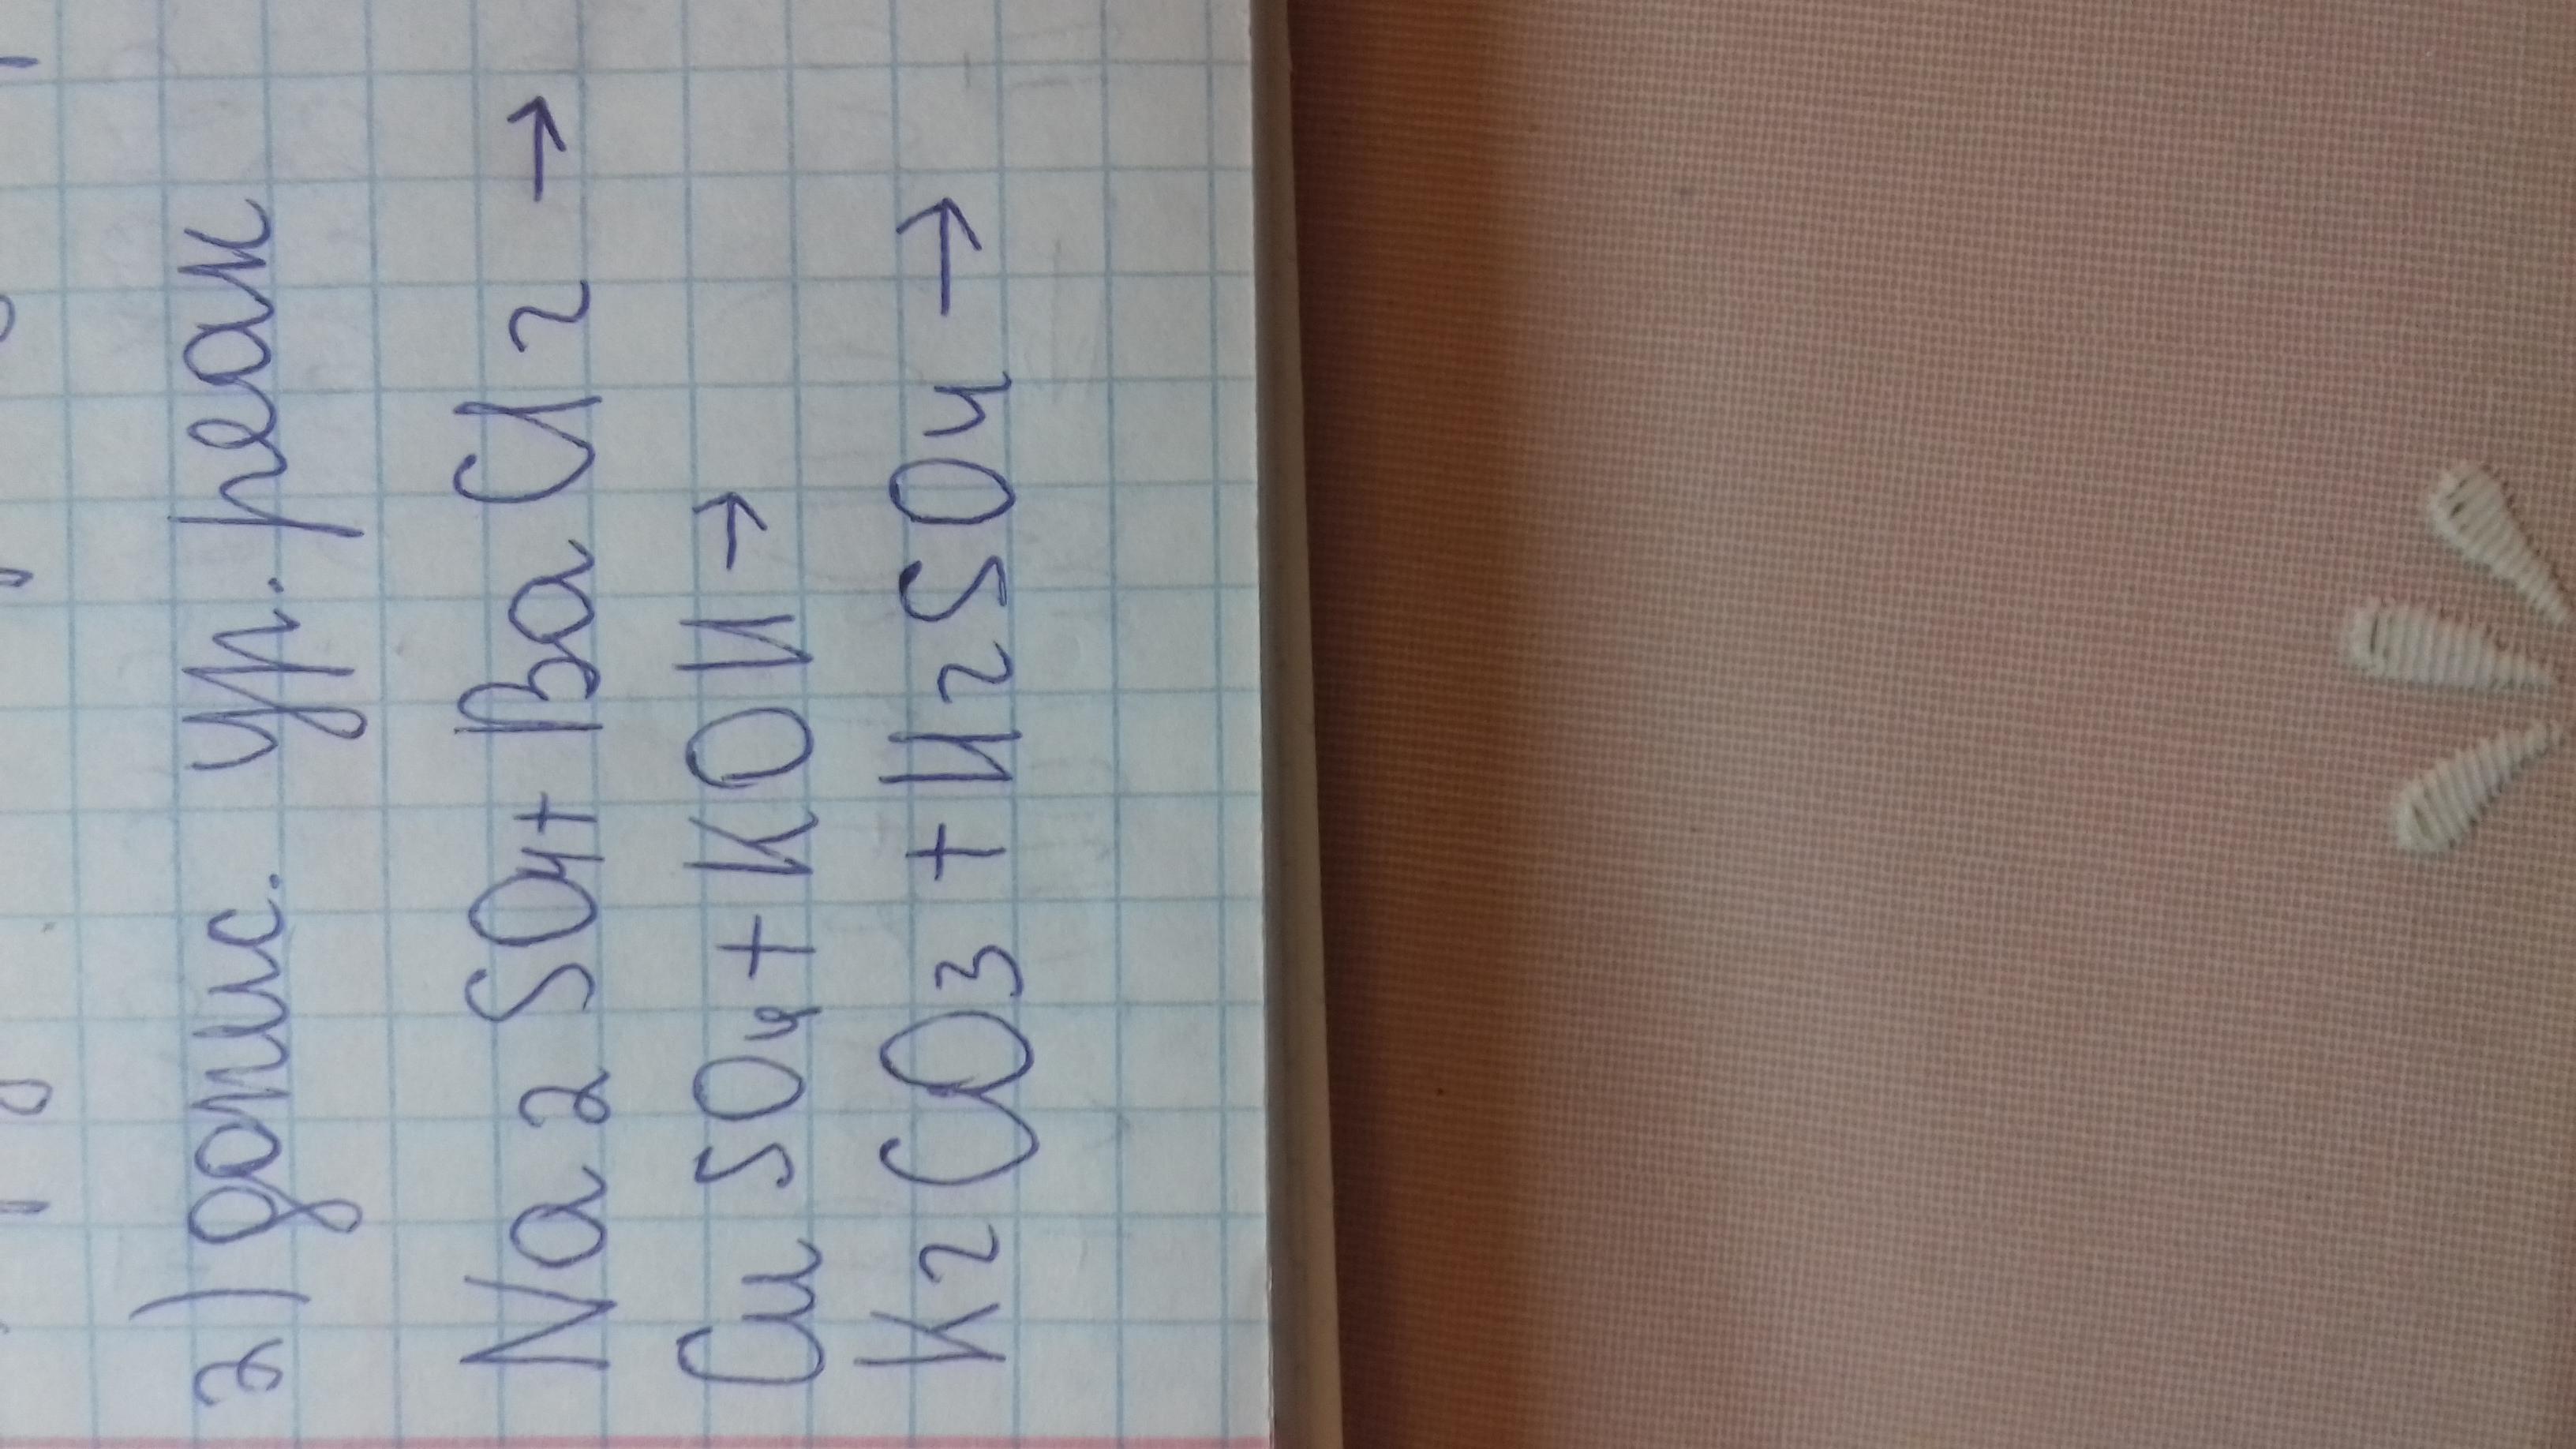 2) допис. ур. реак
Na2SO4+BaCl2→
CuSO4+KOH→
K2CO3+H2SO4→